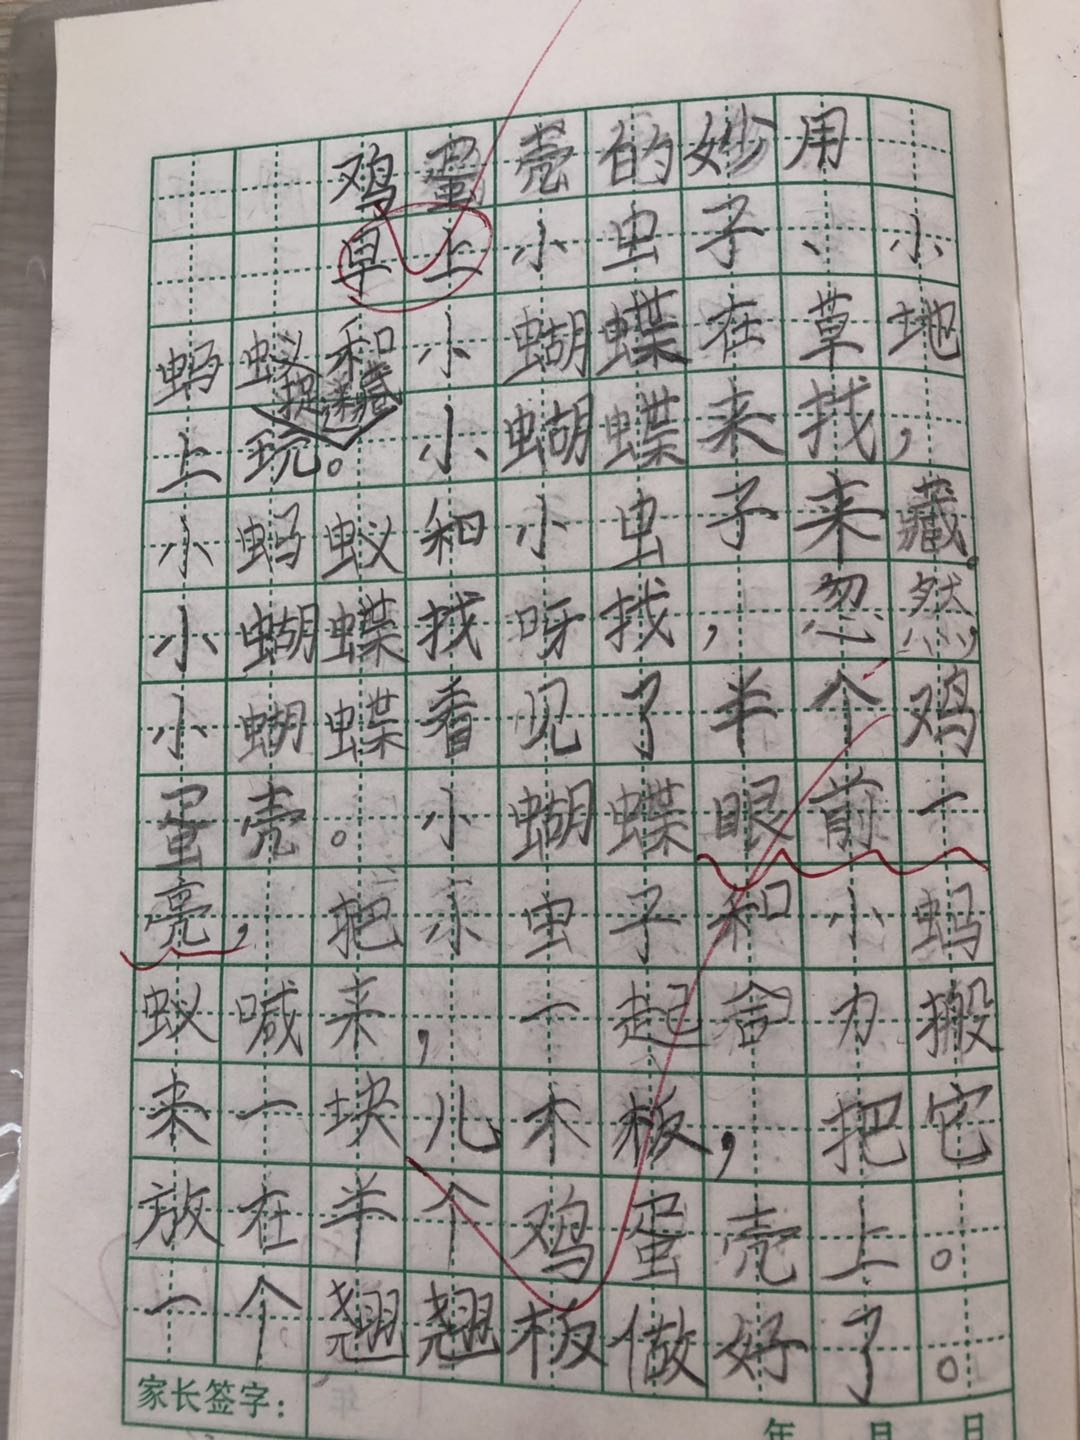 鸡蛋壳的妙用
早上小虫子、小
蚂蚁和小蝴蝶在草地
捉迷藏
上玩。小蝴蝶来找，
小蚂蚁和小虫子来藏。
小蝴蝶找呀找，忽然，
小蝴蝶看见了半个鸡
蛋壳。小蝴蝶眼前一
亮，把小虫子和小蚂
蚁喊来，一起合力搬
来一块儿木板，把它
放在半个鸡蛋壳上。
一个翘翘板做好了。
家长签字：
年 月 日